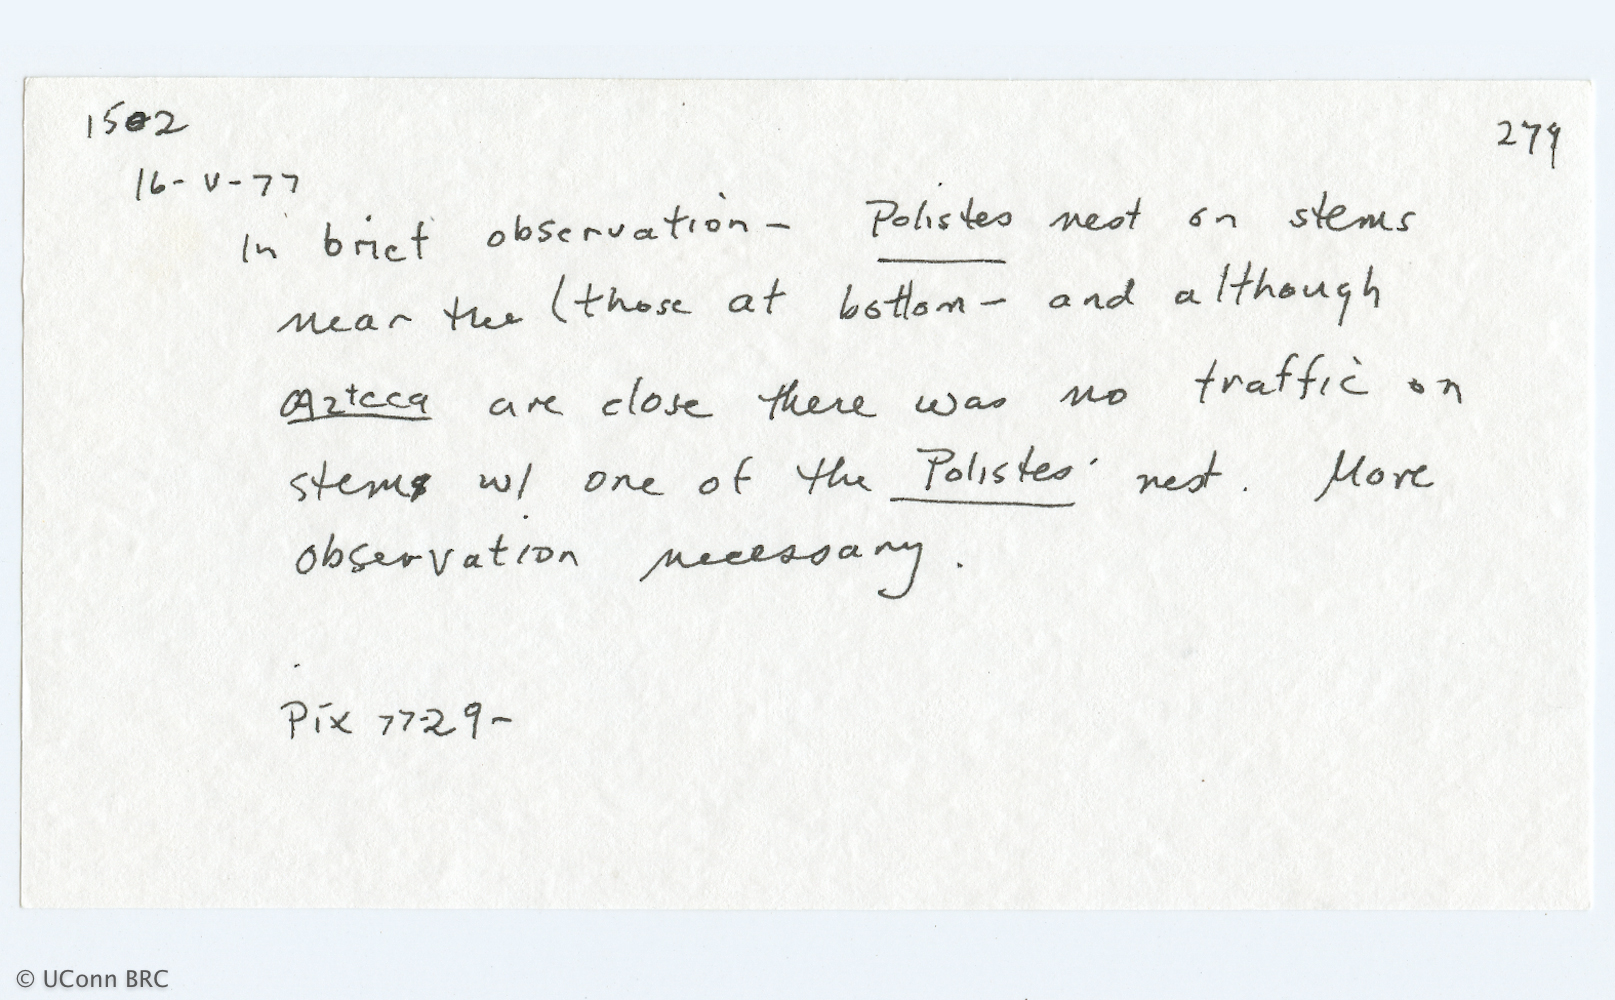 1502
279
16-V-77
In brief observation - Polistes nest on stems
near the (those at bottom - and although
Azteca are close there was no traffic on
stems w/ one of the Polistes' nest. More
observation necessary.
Pix 7729-
© UConn BRC